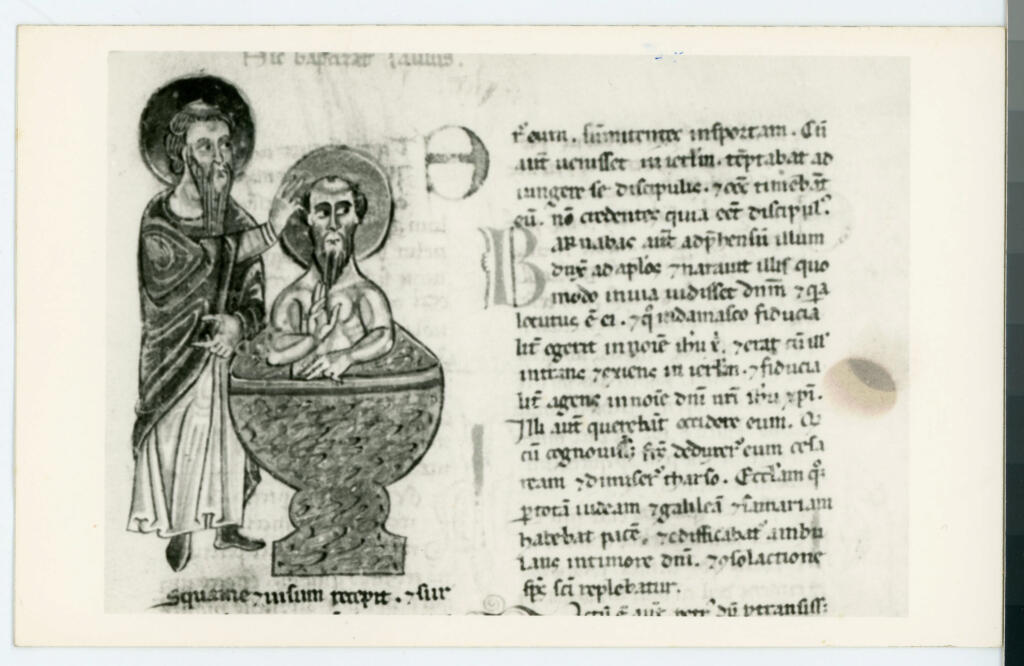 Hic baptizat(ur) saulus.
squame ⁊ uisum recepit. ⁊ sur
t̄ eum. sūmittentes insportam. Cū
aut̄ uenisset in ierl̄m. tēptabat ad
iungere se discipulis. ⁊ oēs timebāt
eū. nō credentes quia eēt discipulꝰ.
BARnabas aūt adp̄hensū illum
dux̄ ad aplōs ⁊ narauit illis quo
modo in uia uidisset dn̄m ⁊ q̄a
locutus ē ei. ⁊ qͦ in damasco fiducia
lit̄ egerit in noīe ihū x̄. ⁊ erat cū ill̄
intrans ⁊ exiens in ierl̄m. ⁊ fiducia
lit̄ agens in noīe dn̄i nr̄i ihū xp̄i.
Illi aūt querebāt occidere eum. Q
cū cognouiss; fr̄s deduxer̄ eum cesa
ream ⁊ dimiser̄ tharso. Eccl̄am qͥ
ꝑ totā iudeam ⁊ galileā ⁊ samariam
habebat pacē, ⁊ edificabat̄ ambu
lans in timore dn̄i. ⁊ ꝯsolactione
sp̄s sc̄i replebatur.